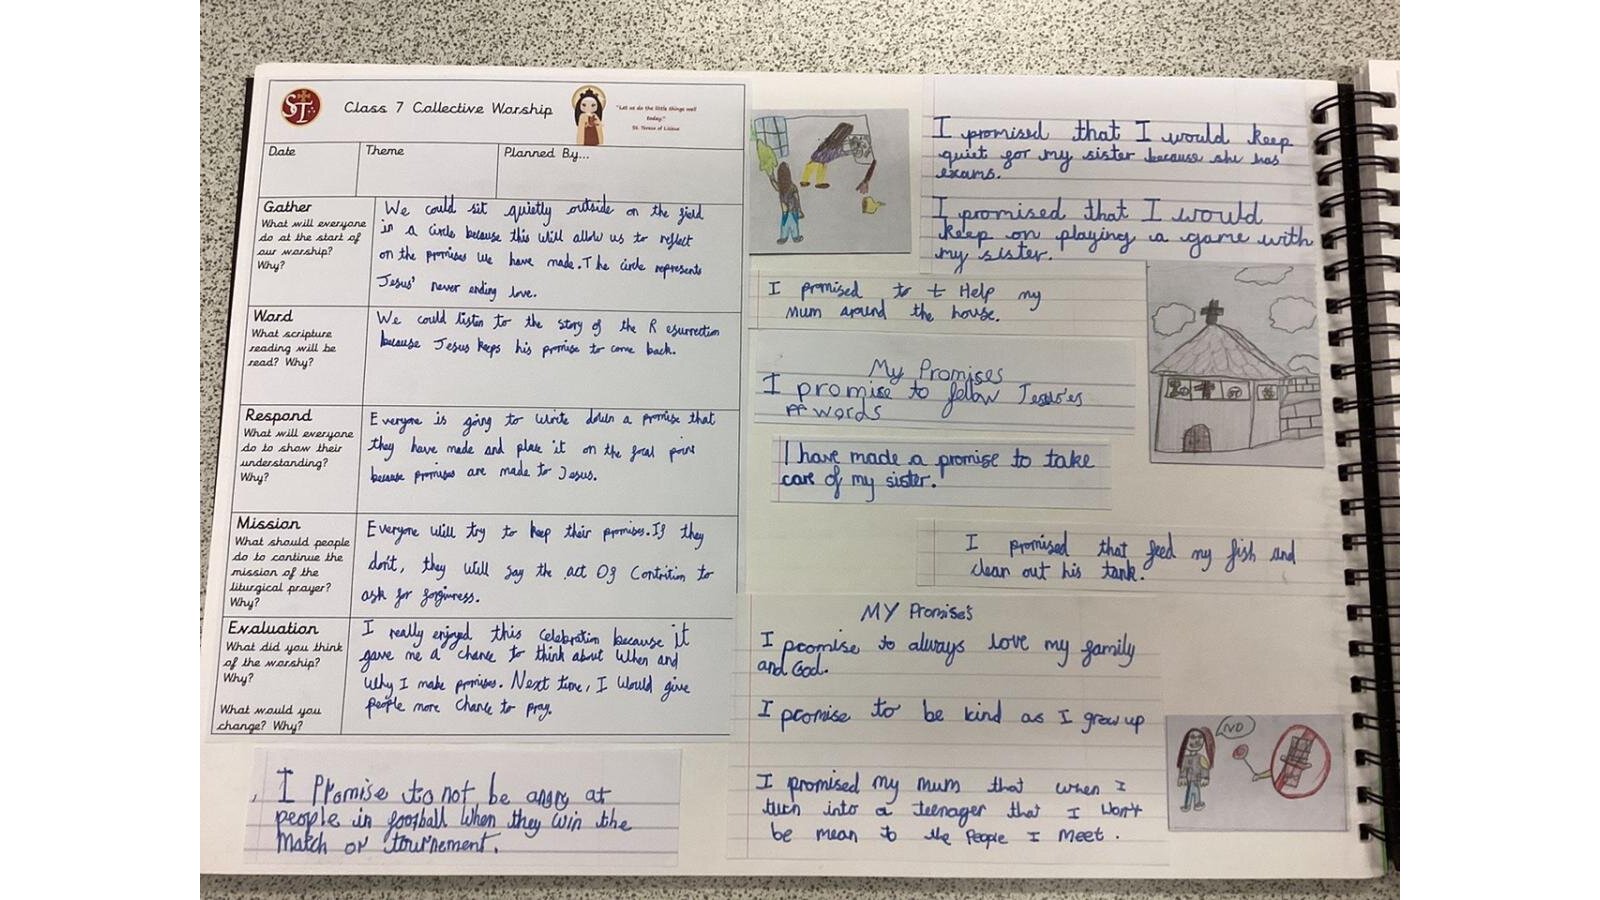 ST
Class 7 Collective Worship
"Let us do the little things well
today."
St. Terese of Lisieux
Date
Theme
Planned By...
Gather
What will everyone
do at the start of
our worship?
Why?
We could sit quietly outside on the field
in a circle because this will allow us to reflect
on the promises we have made. The circle represents
Jesus' never ending love.
Word
What scripture
reading will be
read? Why?
We could listen to the story of the Resurrection
because Jesus keeps his promise to come back.
Respond
What will everyone
do to show their
understanding?
Why?
Everyone is going to write down a promise that
they have made and place it on the focal point
because promises are made to Jesus.
Mission
What should people
do to continue the
mission of the
liturgical prayer?
Why?
Everyone will try to keep their promises. If they
don't, they will say the act Of Contrition to
ask for forgivness.
Evaluation
What did you think
of the worship?
Why?
What would you
change? Why?
I really enjoyed this celebration because it
gave me a chance to think about when and
why I make promises. Next time, I would give
people more chance to pray.
I Promise to not be angry at
people in football when they win the
match or tournement.
I promised that I would keep
quiet for my sister because she has
exams.
I promised that I would
keep on playing a game with
my sister.
I promised to t Help my
mum around the house.
My Promises
I promise to follow Jesus'es
words
I have made a promise to take
care of my sister.
I promised that feed my fish and
clean out his tank.
MY Promise's
I promise to always love my family
and God.
I promise to be kind as I grow up
I promised my mum that when I
turn into a teenager that I won't
be mean to the People I meet.
NO